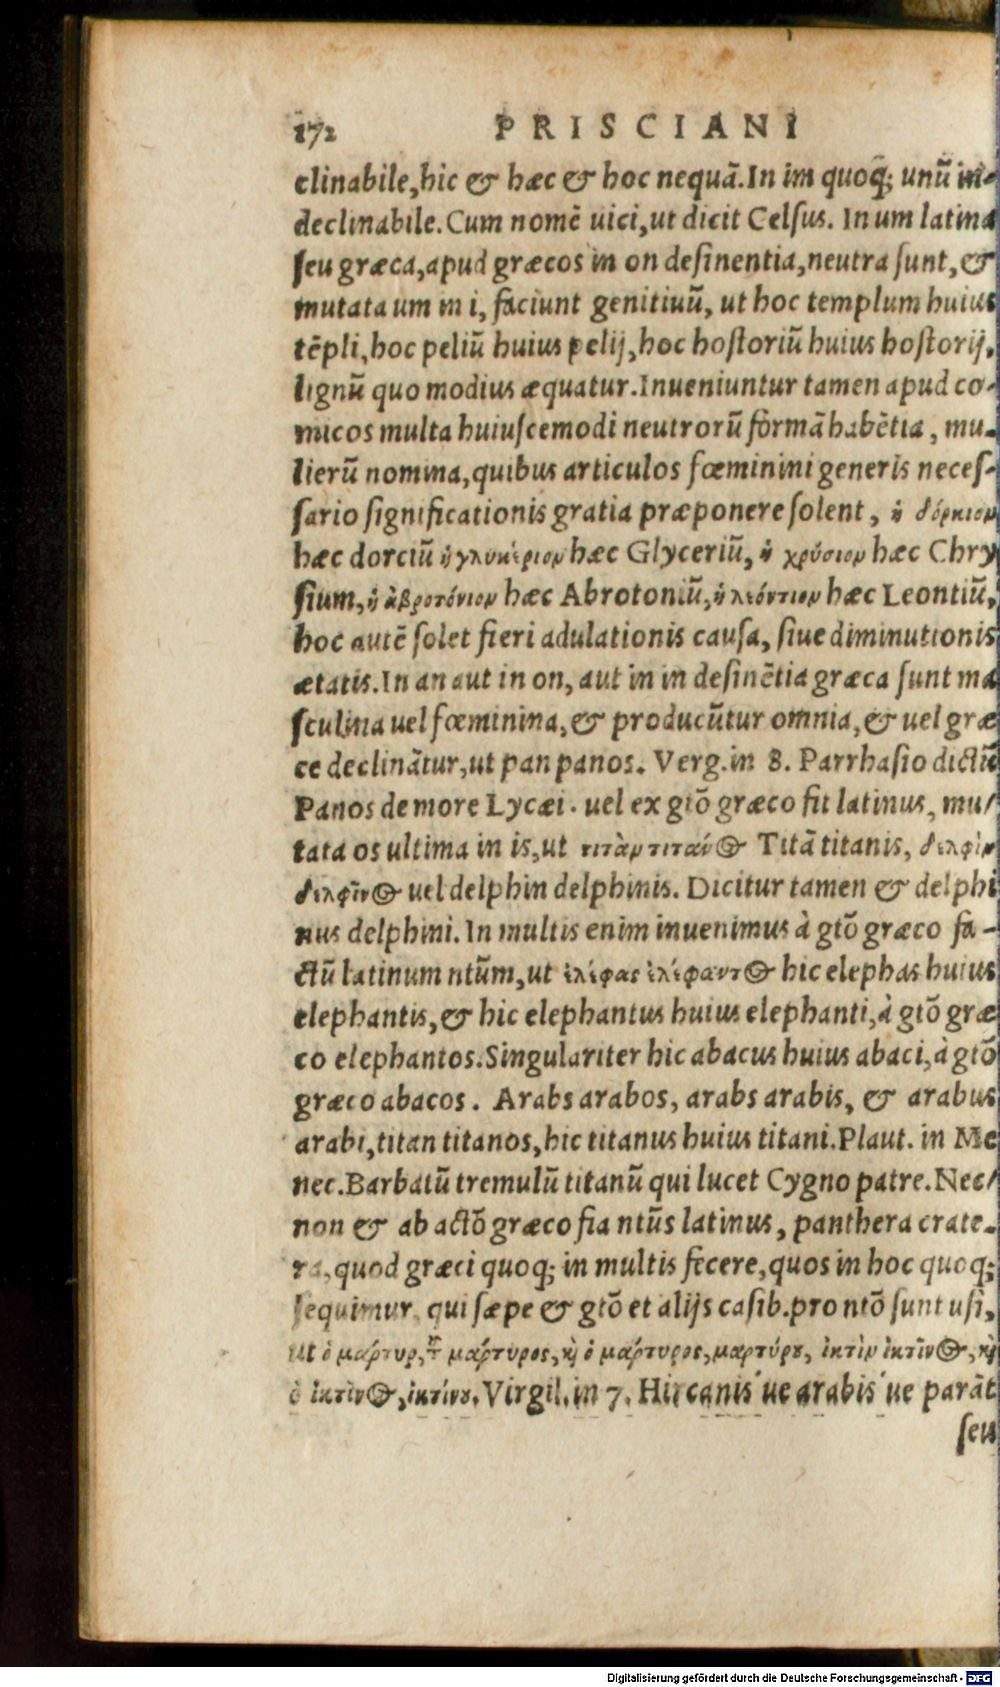 172 PRISCIANI
clinabile, hic & hæc & hoc nequā. In im quoq; unū in-
declinabile. Cum nomē uici, ut dicit Celsus. In um latina
seu græca, apud græcos in on desinentia, neutra sunt, &
mutata um in i, faciunt genitiuū, ut hoc templum huius
tēpli, hoc peliū huius pelij, hoc hostoriū huius hostorij,
lignū quo modius æquatur. Inueniuntur tamen apud co-
micos multa huiuscemodi neutrorū formā habētia, mu-
lierū nomina, quibus articulos fœminini generis neces-
sario significationis gratia præponere solent, ἡ δόρκιον
hæc dorciū ἡ γλυκέριον hæc Glyceriū, ἡ χρύσιον hæc Chry
sium, ἡ ἁβροτόνιον hæc Abrotoniū, ἡ λεόντιον hæc Leontiū,
hoc autē solet fieri adulationis causa, siue diminutionis
ætatis. In an aut in on, aut in in desinētia græca sunt ma
sculina uel fœminina, & producūtur omnia, & uel græ
ce declinātur, ut pan panos. Verg. in 8. Parrhasio dictū
Panos de more Lycæi. uel ex gtō græco fit latinus, mu/
tata os ultima in is, ut τιτὰν τιτάνος Titā titanis, δελφὶν
δελφῖνος uel delphin delphinis. Dicitur tamen & delphi
nus delphini. In multis enim inuenimus à gtō græco fa-
ctū latinum ntūm, ut ἐλέφας ἐλέφαντος hic elephas huius
elephantis, & hic elephantus huius elephanti, à gtō græ
co elephantos. Singulariter hic abacus huius abaci, à gtō
græco abacos. Arabs arabos, arabs arabis, & arabus
arabi, titan titanos, hic titanus huius titani. Plaut. in Me
nec. Barbatū tremulū titanū qui lucet Cygno patre. Nec/
non & ab actō græco fia ntūs latinus, panthera crate-
ra, quod græci quoq; in multis fecere, quos in hoc quoq;
sequimur, qui sæpe & gtō et alijs casib. pro ntō sunt usi,
ut ὁ μάρτυρ, τ͂ μάρτυρος, κὶ ὁ μάρτυρος, μαρτύρου, ἰκτὶν ἰκτῖνος, κὶ
ὁ ἰκτῖνος, ἰκτίνου. Virgil. in 7. Hircanis'ue arabis'ue parāt
seu
Digitalisierung gefördert durch die Deutsche Forschungsgemeinschaft - DFG